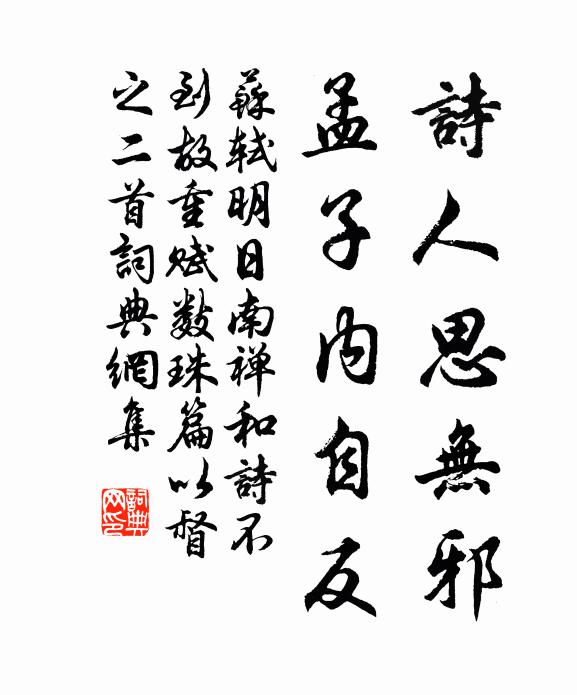 詩人思無邪
孟子内自反
蘇軾明日南禅和詩不
到故重賦數珠篇以督
之二首詞典網集
詞典网印